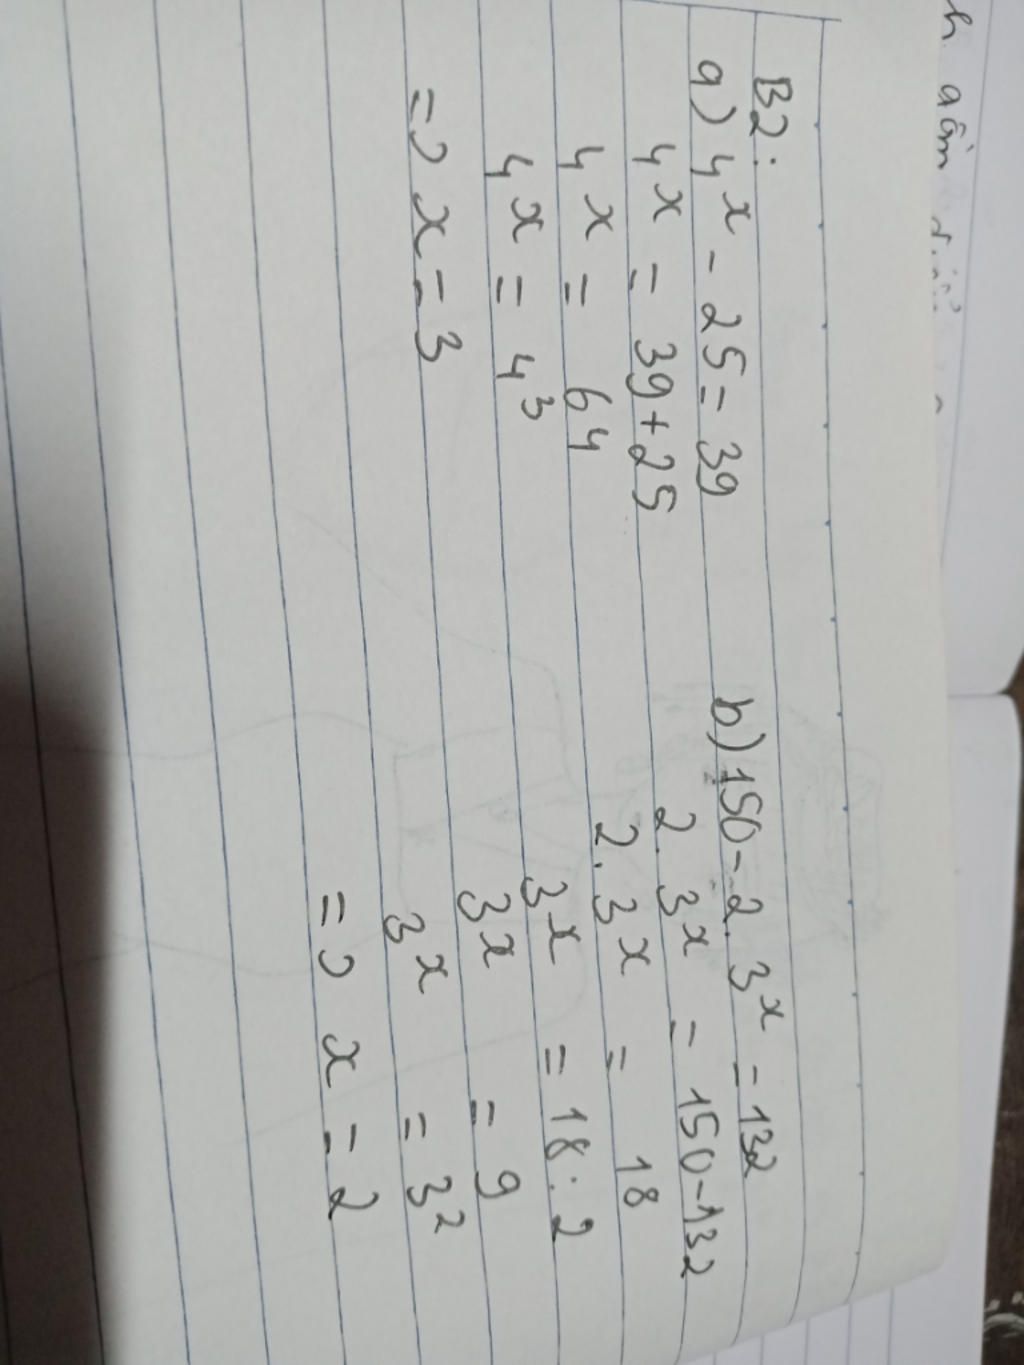 B2:
a) 4^x - 25 = 39
4^x = 39 + 25
4^x = 64
4^x = 4^3
=> x = 3
b) 150 - 2. 3^x = 132
2. 3^x = 150 - 132
2. 3^x = 18
3^x = 18 : 2
3^x = 9
3^x = 3^2
=> x = 2